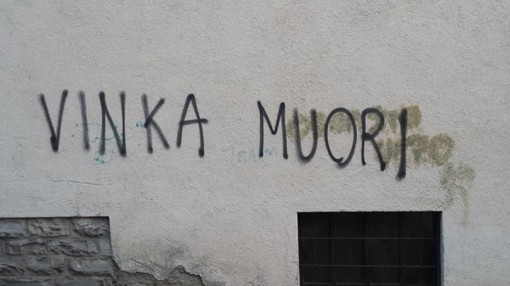 VINKA MUORI